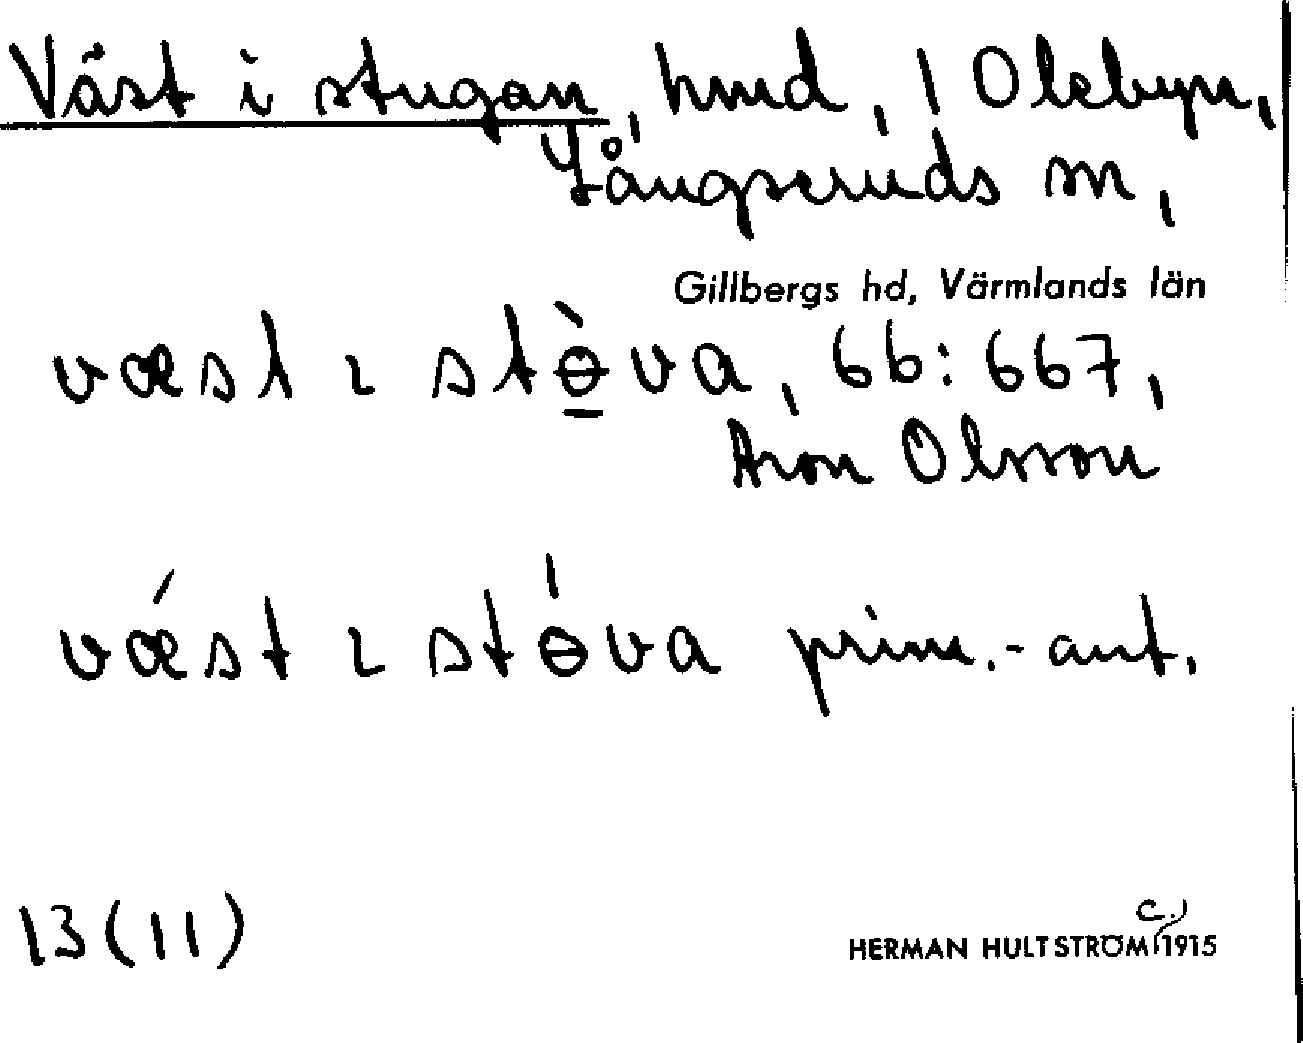 Väst i stugan, hmd, 1 Olebyn,
Långseruds sn,
Gillbergs hd, Värmlands län
væst ɩ stɵ̀va, 66:667,
Aron Olsson
vǽst ɩ stɵ́va prim.-ant.
13 (11)
HERMAN HULTSTRÖM c.) 1915